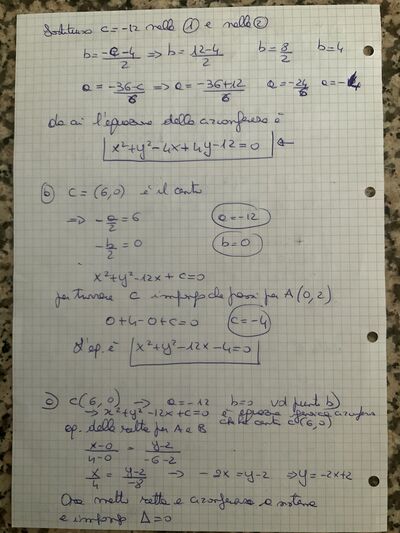 Sostituisco c=-12 nella ① e nella ②
b = -c-4/2 ⇒ b = 12-4/2   b = 8/2   b = 4
a = -36-c/6 ⇒ a = -36+12/6   a = -24/6   a = -4
da cui l'equazione della circonferenza è
x²+y²-4x+4y-12=0 ←
b) C = (6,0) è il centro
⇒ -a/2 = 6   a = -12
-b/2 = 0   b = 0
x²+y²-12x+c=0
per trovare c impongo che passi per A(0,2)
0+4-0+c=0   c=-4
L'eq. è x²+y²-12x-4=0
c) C(6,0) → a=-12   b=0   vd punto b)
→ x²+y²-12x+c=0 è equazione generica circonf
che ha centro C(6,0)
eq. della retta per A e B
x-0/4-0 = y-2/-6-2
x/4 = y-2/-8 → -2x=y-2 ⇒ y=-2x+2
Ora metto retta e circonferenza a sistema
e impongo Δ=0